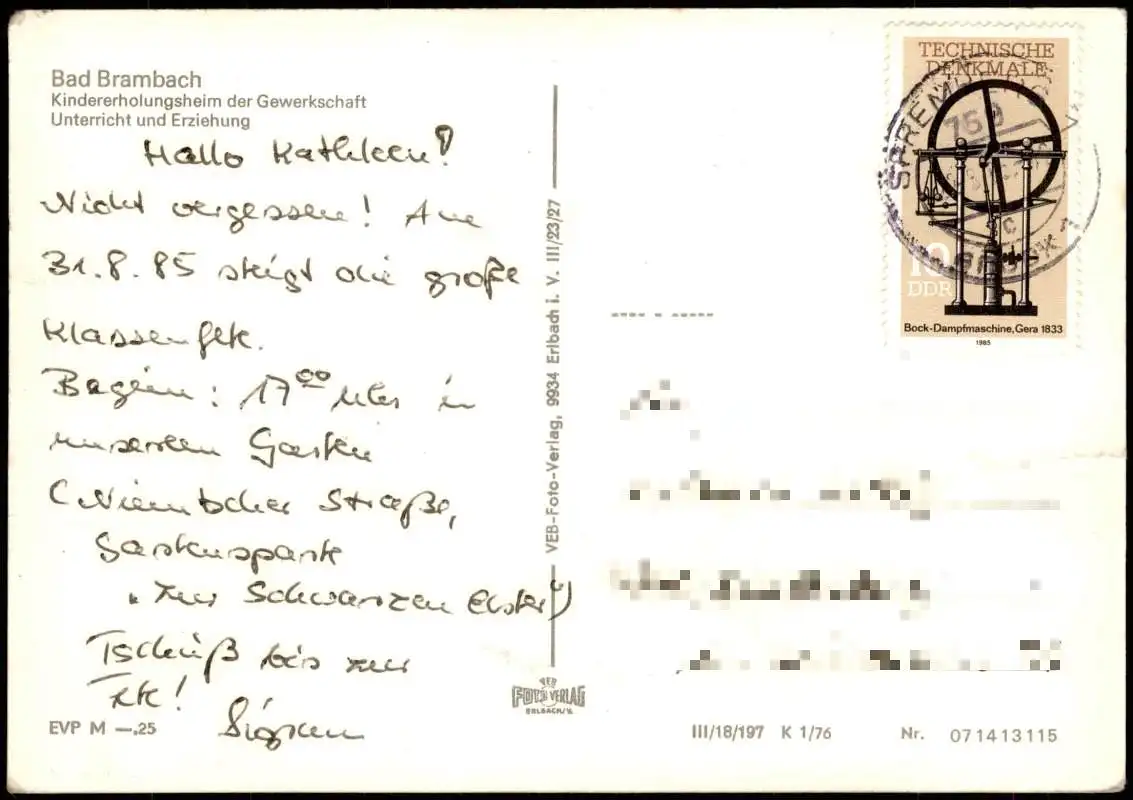 Bad Brambach
Kindererholungsheim der Gewerkschaft
Unterricht und Erziehung
Hallo Kathleen!
Nicht vergessen! Am
31.8.85 steigt die große
Klassenfete.
Beginn: 17⁰⁰ Uhr in
unserem Garten
( Straße,
Gartensparte
"Zur Schwarzen Elster")
Tschüß bis zur
Fete!
VEB-Foto-Verlag, 9934 Erlbach i. V. III/23/27
VEB
FOTO VERLAG
ERLBACH/V.
EVP M —,25
III/18/197 K 1/76
Nr. 071413115
TECHNISCHE
DENKMALE
10
DDR
Bock-Dampfmaschine, Gera 1833
1985
759